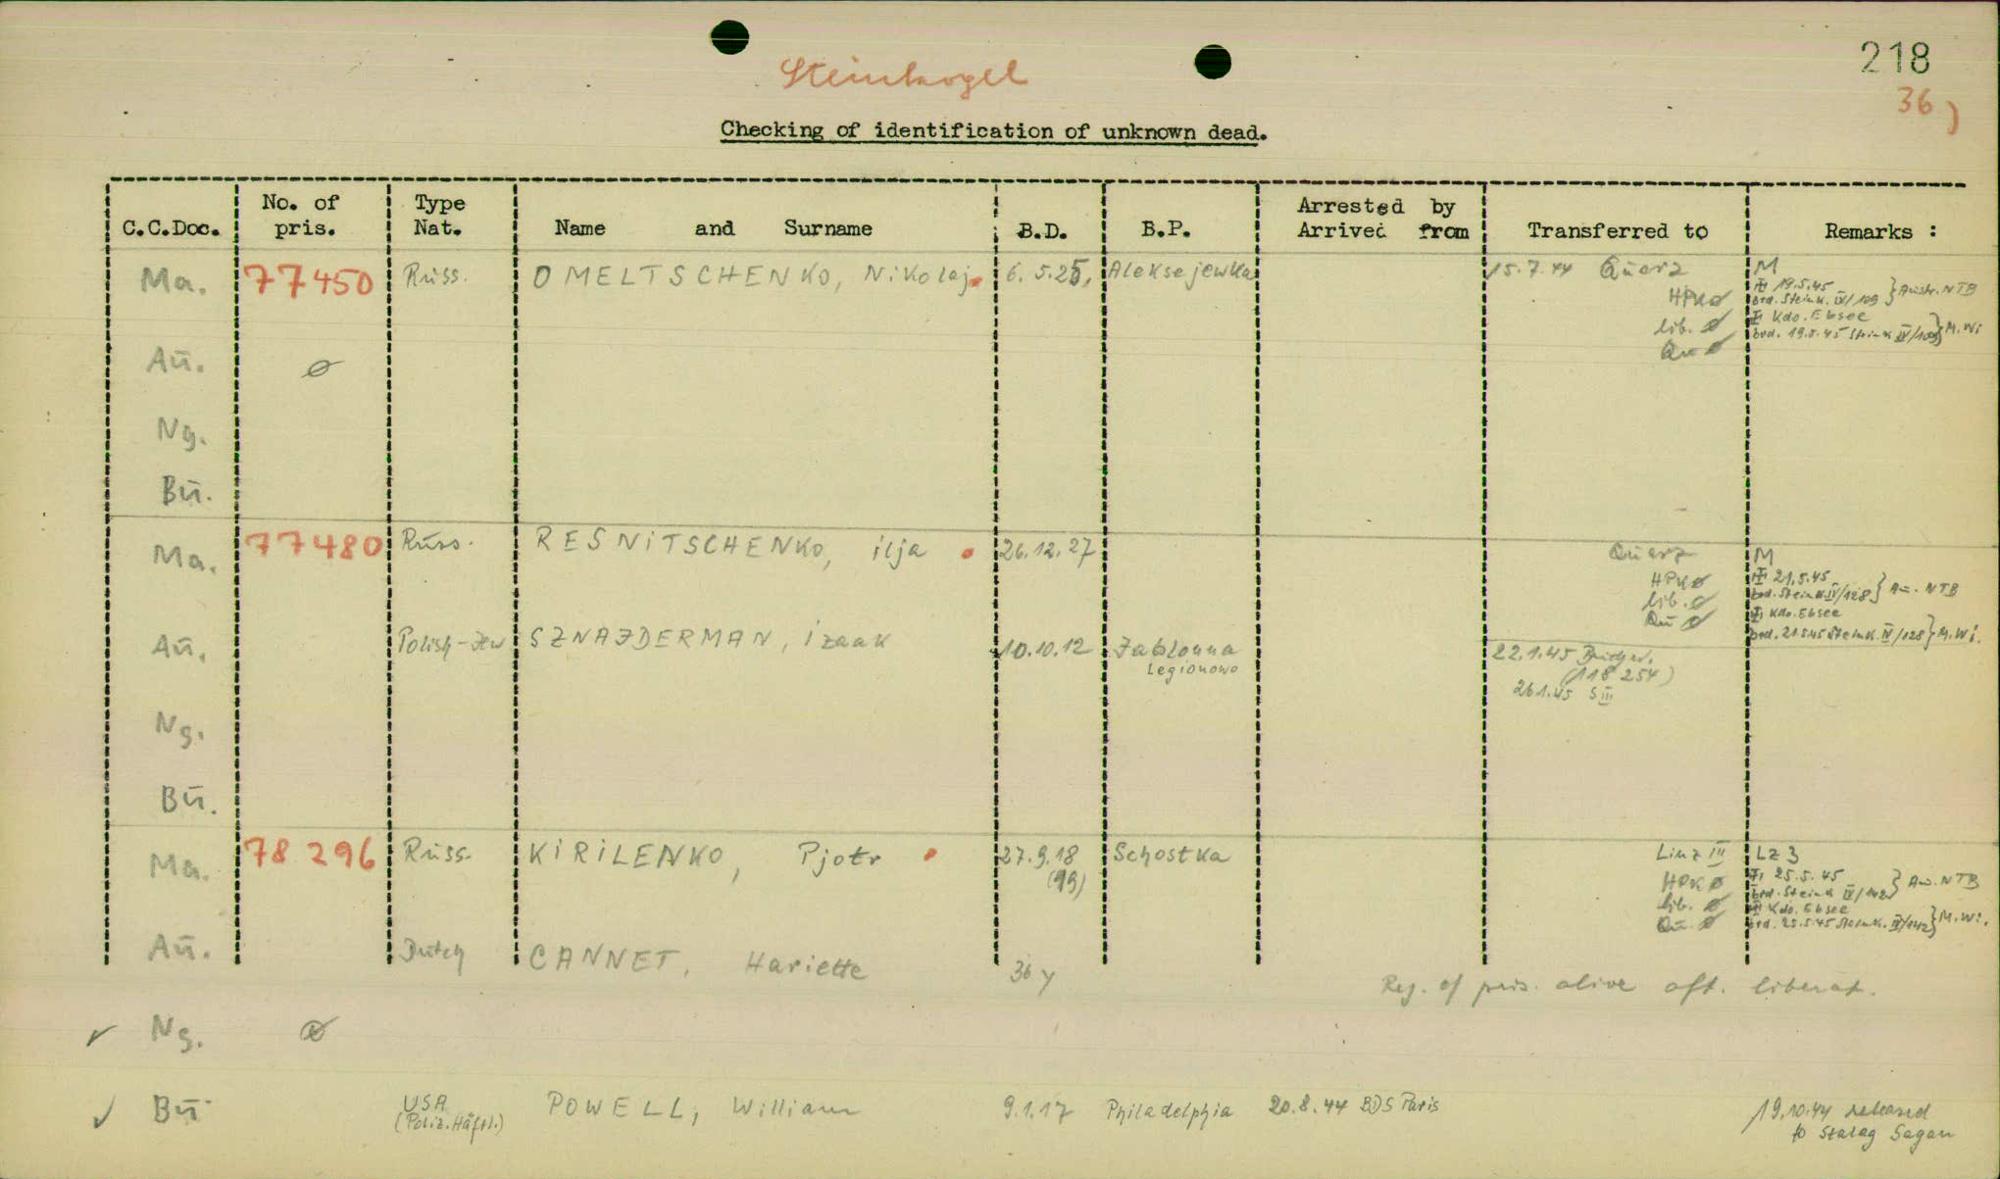 218
Steinkogel
36)
Checking of identification of unknown dead.
C.C.Doc. No. of pris. Type Nat. Name and Surname B.D. B.P. Arrested by Arrived from Transferred to Remarks :
Ma. 77450 Russ. OMELTSCHENKO, Nikolaj 6.5.25, Aleksejewka 15.7.44 Quarz M
HPK ø ✝ 19.5.45
brd. Steink. IV/109 } Austr. NTB
lib. ø ✝ Kdo. Ebsee
Qu ø brd. 19.5.45 Steink IV/109 } M.Wi
Aū. ø
Ng.
Bū.
Ma. 77480 Russ. RESNiTSCHENKO, ilja 26.12.27 Quarz M
HPK ø ✝ 21.5.45
lib. ø brd. Steink IV/128 } Au. NTB
Qū ø ✝ Kdo. Ebsee
brd. 21.5.45 Steink. IV/128 } M.Wi.
Aū. Polish-Jew SZNAJDERMAN, izaak 10.10.12 Jablonna Legionowo 22.1.45
(118 254)
26.1.45 S III
Ng.
Bū.
Ma. 78 296 Russ. KiRiLENKO, Pjotr 27.9.18 (99) Schostka Linz III Lz 3
HPK ø ✝ 25.5.45
lib. ø brd. Steink IV/142 } Au. NTB
✝ Kdo. Ebsee
Qū. ø brd. 25.5.45 Steink. IV/142 } M.Wi.
Aū. Dutch CANNET, Hariette 36 y Reg. of pris. alive aft. liberat.
✓ Ng. ø
✓ Bū USA (Poliz.Häftl.) POWELL, William 9.1.17 Philadelphia 20.8.44 BDS Paris 19.10.44 released
to Stalag Sagan